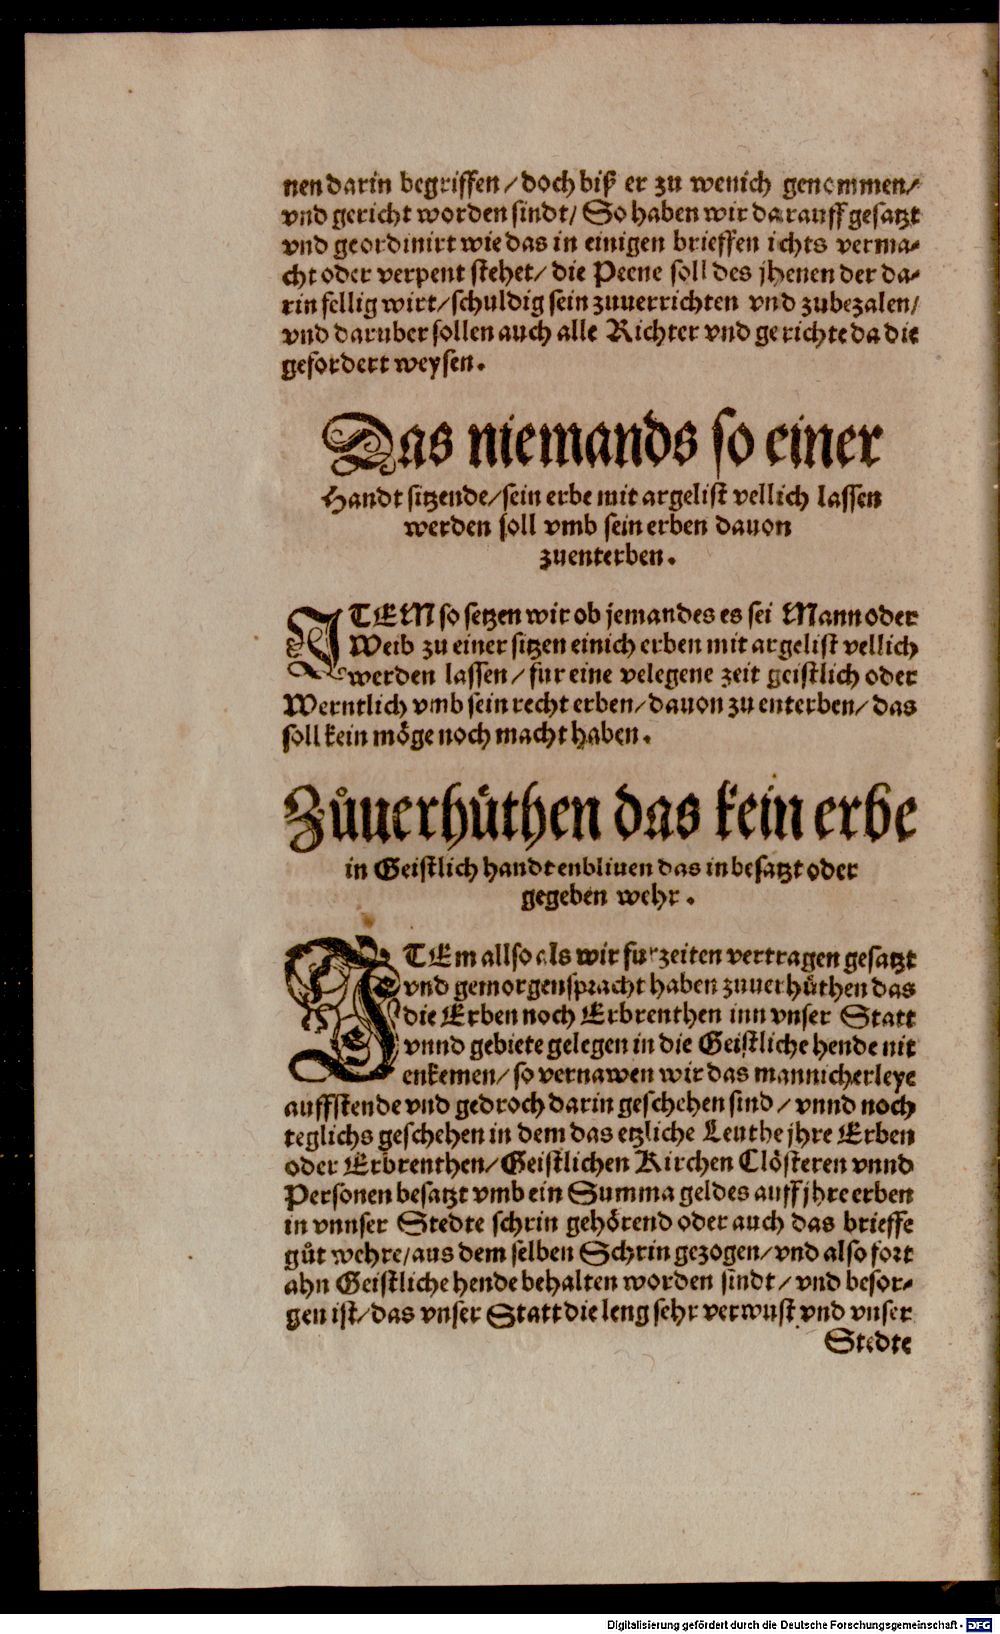 nen darin begriffen / doch biß er zu wenich genommen /
vnd gericht worden sindt / So haben wir darauff gesatzt
vnd geordinirt wie das in einigen brieffen ichts verma-
cht oder verpent stehet / die Peene soll des jhenen der da-
rin fellig wirt / schuldig sein zuuerrichten vnd zubezalen /
vnd daruber sollen auch alle Richter vnd gerichte da die
gefordert weysen.
Das niemands so einer
Handt sitzende / sein erbe mit argelist vellich lassen
werden soll vmb sein erben dauon
zuenterben.
ITEM so setzen wir ob jemandes es sei Mann oder
Weib zu einer sitzen einich erben mit argelist vellich
werden lassen / fur eine velegene zeit geistlich oder
Werntlich vmb sein recht erben / dauon zu enterben / das
soll kein möge noch macht haben.
Zůuerhůthen das kein erbe
in Geistlich handt enbliuen das in besatzt oder
gegeben wehr.
ITEm allso als wir fur zeiten vertragen gesatzt
vnd gemorgenspracht haben zuuerhůthen das
die Erben noch Erbrenthen inn vnser Statt
vnnd gebiete gelegen in die Geistliche hende nit
enkemen / so vernawen wir das mannicherleye
auffstende vnd gedroch darin geschehen sind / vnnd noch
teglichs geschehen in dem das etzliche Leuthe jhre Erben
oder Erbrenthen / Geistlichen Kirchen Clösteren vnnd
Personen besatzt vmb ein Summa geldes auff jhre erben
in vnnser Stedte schrin gehörend oder auch das brieffe
gůt wehre / aus dem selben Schrin gezogen / vnd also fort
ahn Geistliche hende behalten worden sindt / vnd besor-
gen ist / das vnser Statt die leng sehr verwust vnd vnser
Stedte
Digitalisierung gefördert durch die Deutsche Forschungsgemeinschaft - DFG